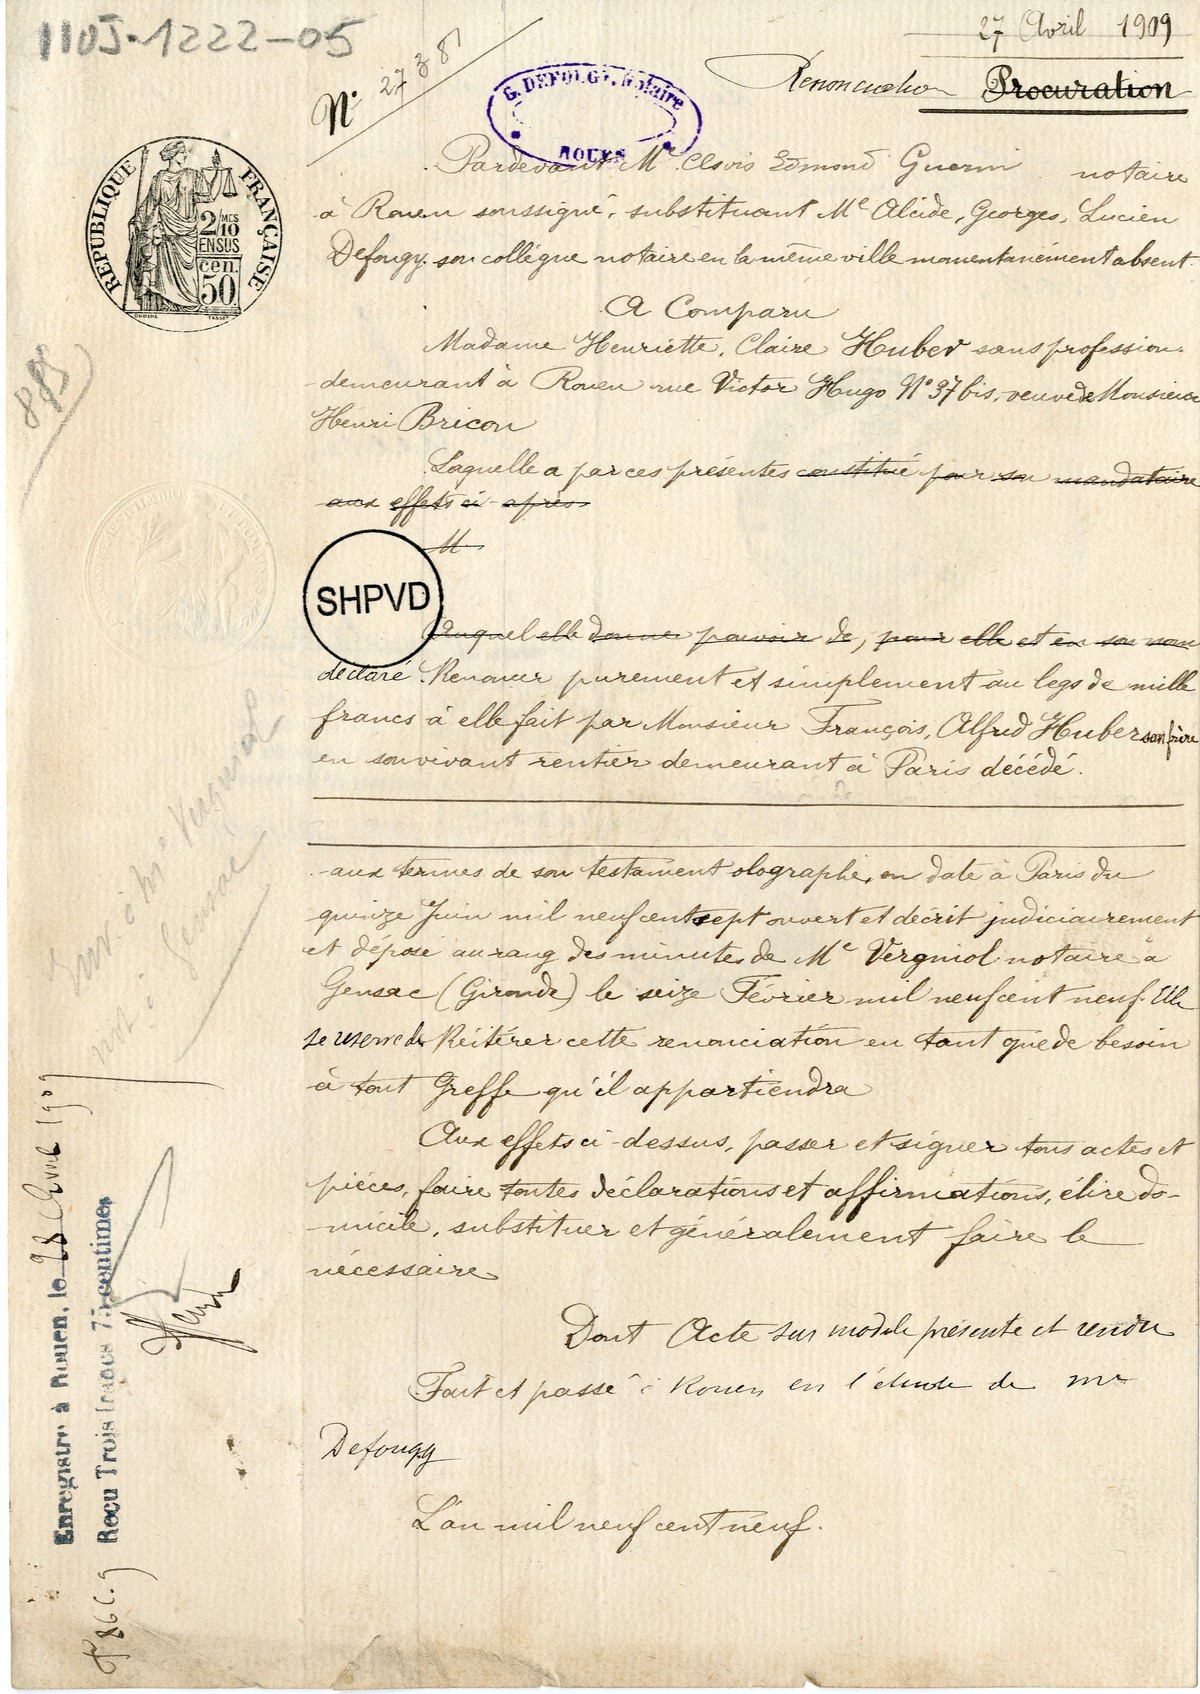 110J-1222-05
27 Avril 1909
N° 27381
G. DEFOUGY, Notaire
ROUEN
Renonciation Procuration
Pardevant Me Clovis Edmond Guerin notaire
à Rouen soussigné, substituant Me Alcide, Georges, Lucien
Defougy son collègue notaire en la même ville momentanément absent.
A Comparu
Madame Henriette, Claire Huber sans profession
demeurant à Rouen rue Victor Hugo N° 37 bis, veuve de Monsieur
Henri Bricon
Laquelle a par ces présentes constitué pour son mandataire
aux effets ci-après
M
Auquel elle donne pouvoir de, pour elle et en son nom
déclaré Renoncer purement et simplement au legs de mille
francs à elle fait par Monsieur François, Alfred Huber son frère
en son vivant rentier demeurant à Paris décédé.
aux termes de son testament olographe, en date à Paris du
quinze Juin mil neuf cent sept ouvert et décrit judiciairement
et déposé au rang des minutes de Me Vergniol notaire à
Gensac (Gironde) le seize Février mil neuf cent neuf. Elle
se réserve de Réitérer cette renonciation en tant que de besoin
à tout Greffe qu'il appartiendra
Aux effets ci-dessus, passer et signer tous actes et
pièces, faire toutes déclarations et affirmations, élire do-
micile, substituer et généralement faire le
nécessaire
Dont Acte sur modèle présenté et rendu
Fait et passé à Rouen en l'étude de Me
Defougy
L'an mil neuf cent neuf.
RÉPUBLIQUE FRANÇAISE
2/10 MES
EN SUS
cen.
50
885
SHPVD
Me Vergniol
not. à Gensac
Enregistré à Rouen, le 28 Avril 1909
Reçu Trois francs 75 centimes